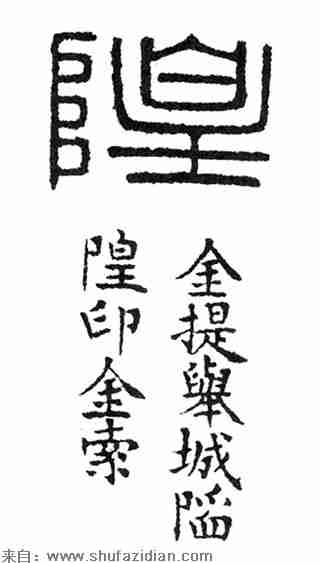 隍
金提舉城
隍印金索
来自：www.shufazidian.com